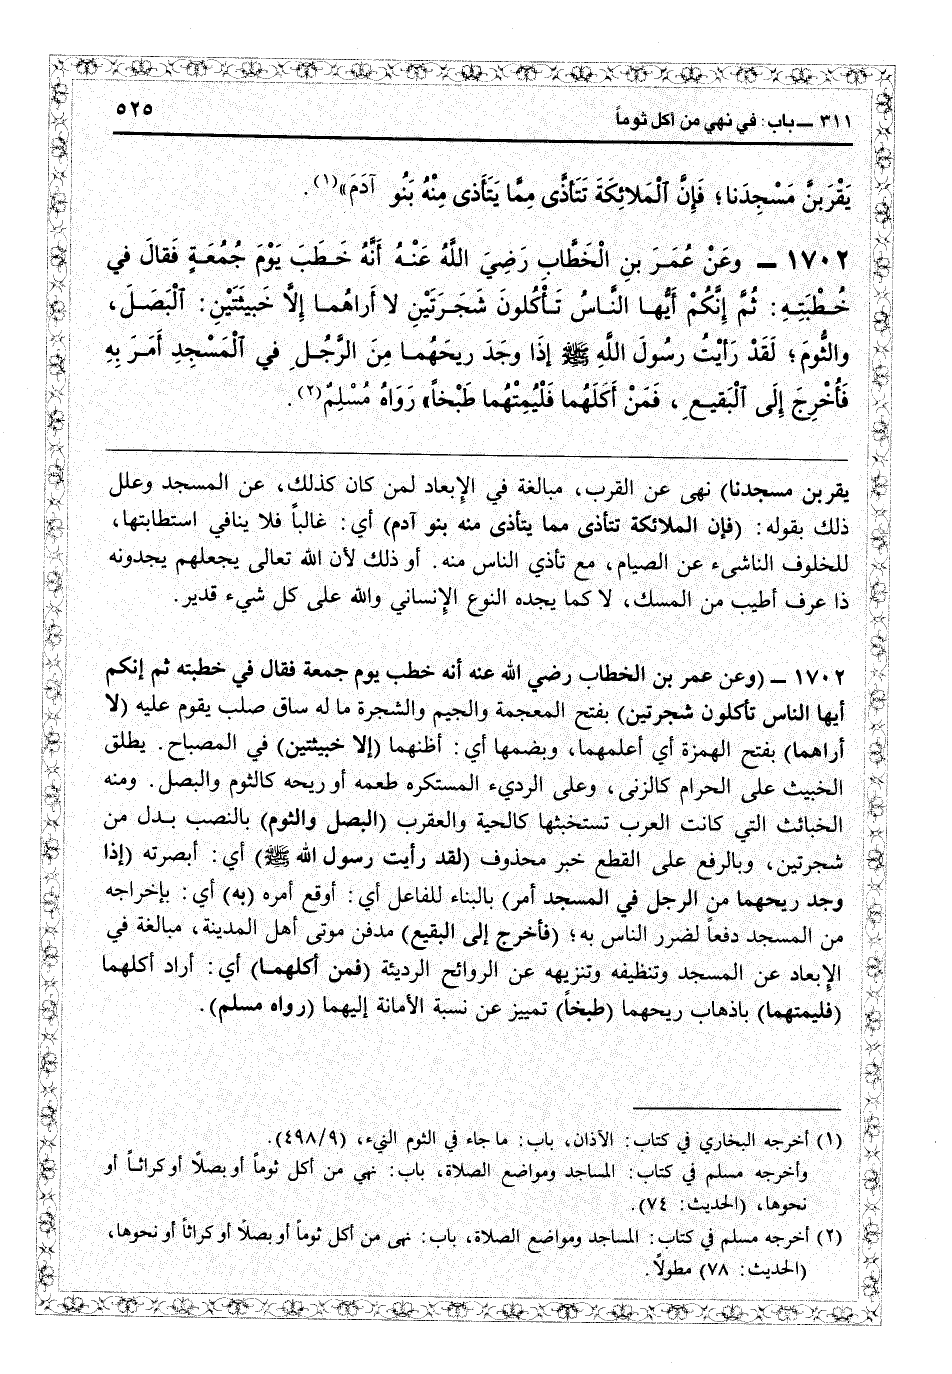 ٣١١ ــ باب: في نهي من أكل ثوماً ٥٢٥
يَقْرَبنَّ مَسْجِدَنا؛ فَإِنَّ ٱلْمَلائِكَةَ تَتَأَذَّى مِمَّا يَتَأَذى مِنْهُ بَنُو آدَمَ»(١).
١٧٠٢ ــ وعَنْ عُمَرَ بنِ الْخَطَّابِ رَضِيَ اللَّهُ عَنْهُ أَنَّهُ خَطَبَ يَوْمَ جُمُعَةٍ فَقالَ في
خُطْبَتِهِ: ثُمَّ إِنَّكُمْ أَيُّها النَّاسُ تَأْكُلونَ شَجَرَتَيْنِ لا أَراهُما إِلَّا خَبيثَتَيْنِ: ٱلْبَصَلَ،
والثُّومَ؛ لَقَدْ رَأَيْتُ رسُولَ اللَّهِ ﷺ إذَا وجَدَ ريحَهُما مِنَ الرَّجُلِ في ٱلْمَسْجِدِ أَمَرَ بِهِ
فَأُخْرِجَ إِلَى ٱلْبَقيعِ، فَمَنْ أَكَلَهُما فَلْيُمِتْهُما طَبْخاً» رَوَاهُ مُسْلِمٌ(٢).
يقربن مسجدنا) نهى عن القرب، مبالغة في الإِبعاد لمن كان كذلك، عن المسجد وعلل
ذلك بقوله: (فإن الملائكة تتأذى مما يتأذى منه بنو آدم) أي: غالباً فلا ينافي استطابتها،
للخلوف الناشىء عن الصيام، مع تأذي الناس منه. أو ذلك لأن الله تعالى يجعلهم يجدونه
ذا عرف أطيب من المسك، لا كما يجده النوع الإِنساني والله على كل شيء قدير.
١٧٠٢ ــ (وعن عمر بن الخطاب رضي الله عنه أنه خطب يوم جمعة فقال في خطبته ثم إنكم
أيها الناس تأكلون شجرتين) بفتح المعجمة والجيم والشجرة ما له ساق صلب يقوم عليه (لا
أراهما) بفتح الهمزة أي أعلمهما، وبضمها أي: أظنهما (إلا خبيثتين) في المصباح. يطلق
الخبيث على الحرام كالزنى، وعلى الرديء المستكره طعمه أو ريحه كالثوم والبصل. ومنه
الخبائث التي كانت العرب تستخبثها كالحية والعقرب (البصل والثوم) بالنصب بدل من
شجرتين، وبالرفع على القطع خبر محذوف (لقد رأيت رسول الله ﷺ) أي: أبصرته (إذا
وجد ريحهما من الرجل في المسجد أمر) بالبناء للفاعل أي: أوقع أمره (به) أي: بإخراجه
من المسجد دفعاً لضرر الناس به؛ (فأخرج إلى البقيع) مدفن موتى أهل المدينة، مبالغة في
الإِبعاد عن المسجد وتنظيفه وتنزيهه عن الروائح الرديئة (فمن أكلهما) أي: أراد أكلهما
(فليمتهما) باذهاب ريحهما (طبخاً) تمييز عن نسبة الأمانة إليهما (رواه مسلم).
(١) أخرجه البخاري في كتاب: الأذان، باب: ما جاء في الثوم النيء، (٤٩٨/٩).
وأخرجه مسلم في كتاب: المساجد ومواضع الصلاة، باب: نهي من أكل ثوماً أو بصلاً أو كراثـاً أو
نحوها، (الحديث: ٧٤).
(٢) أخرجه مسلم في كتاب: المساجد ومواضع الصلاة، باب: نهى من أكل ثوماً أو بصلًا أو كراثاً أو نحوها،
(الحديث: ٧٨) مطولاً.